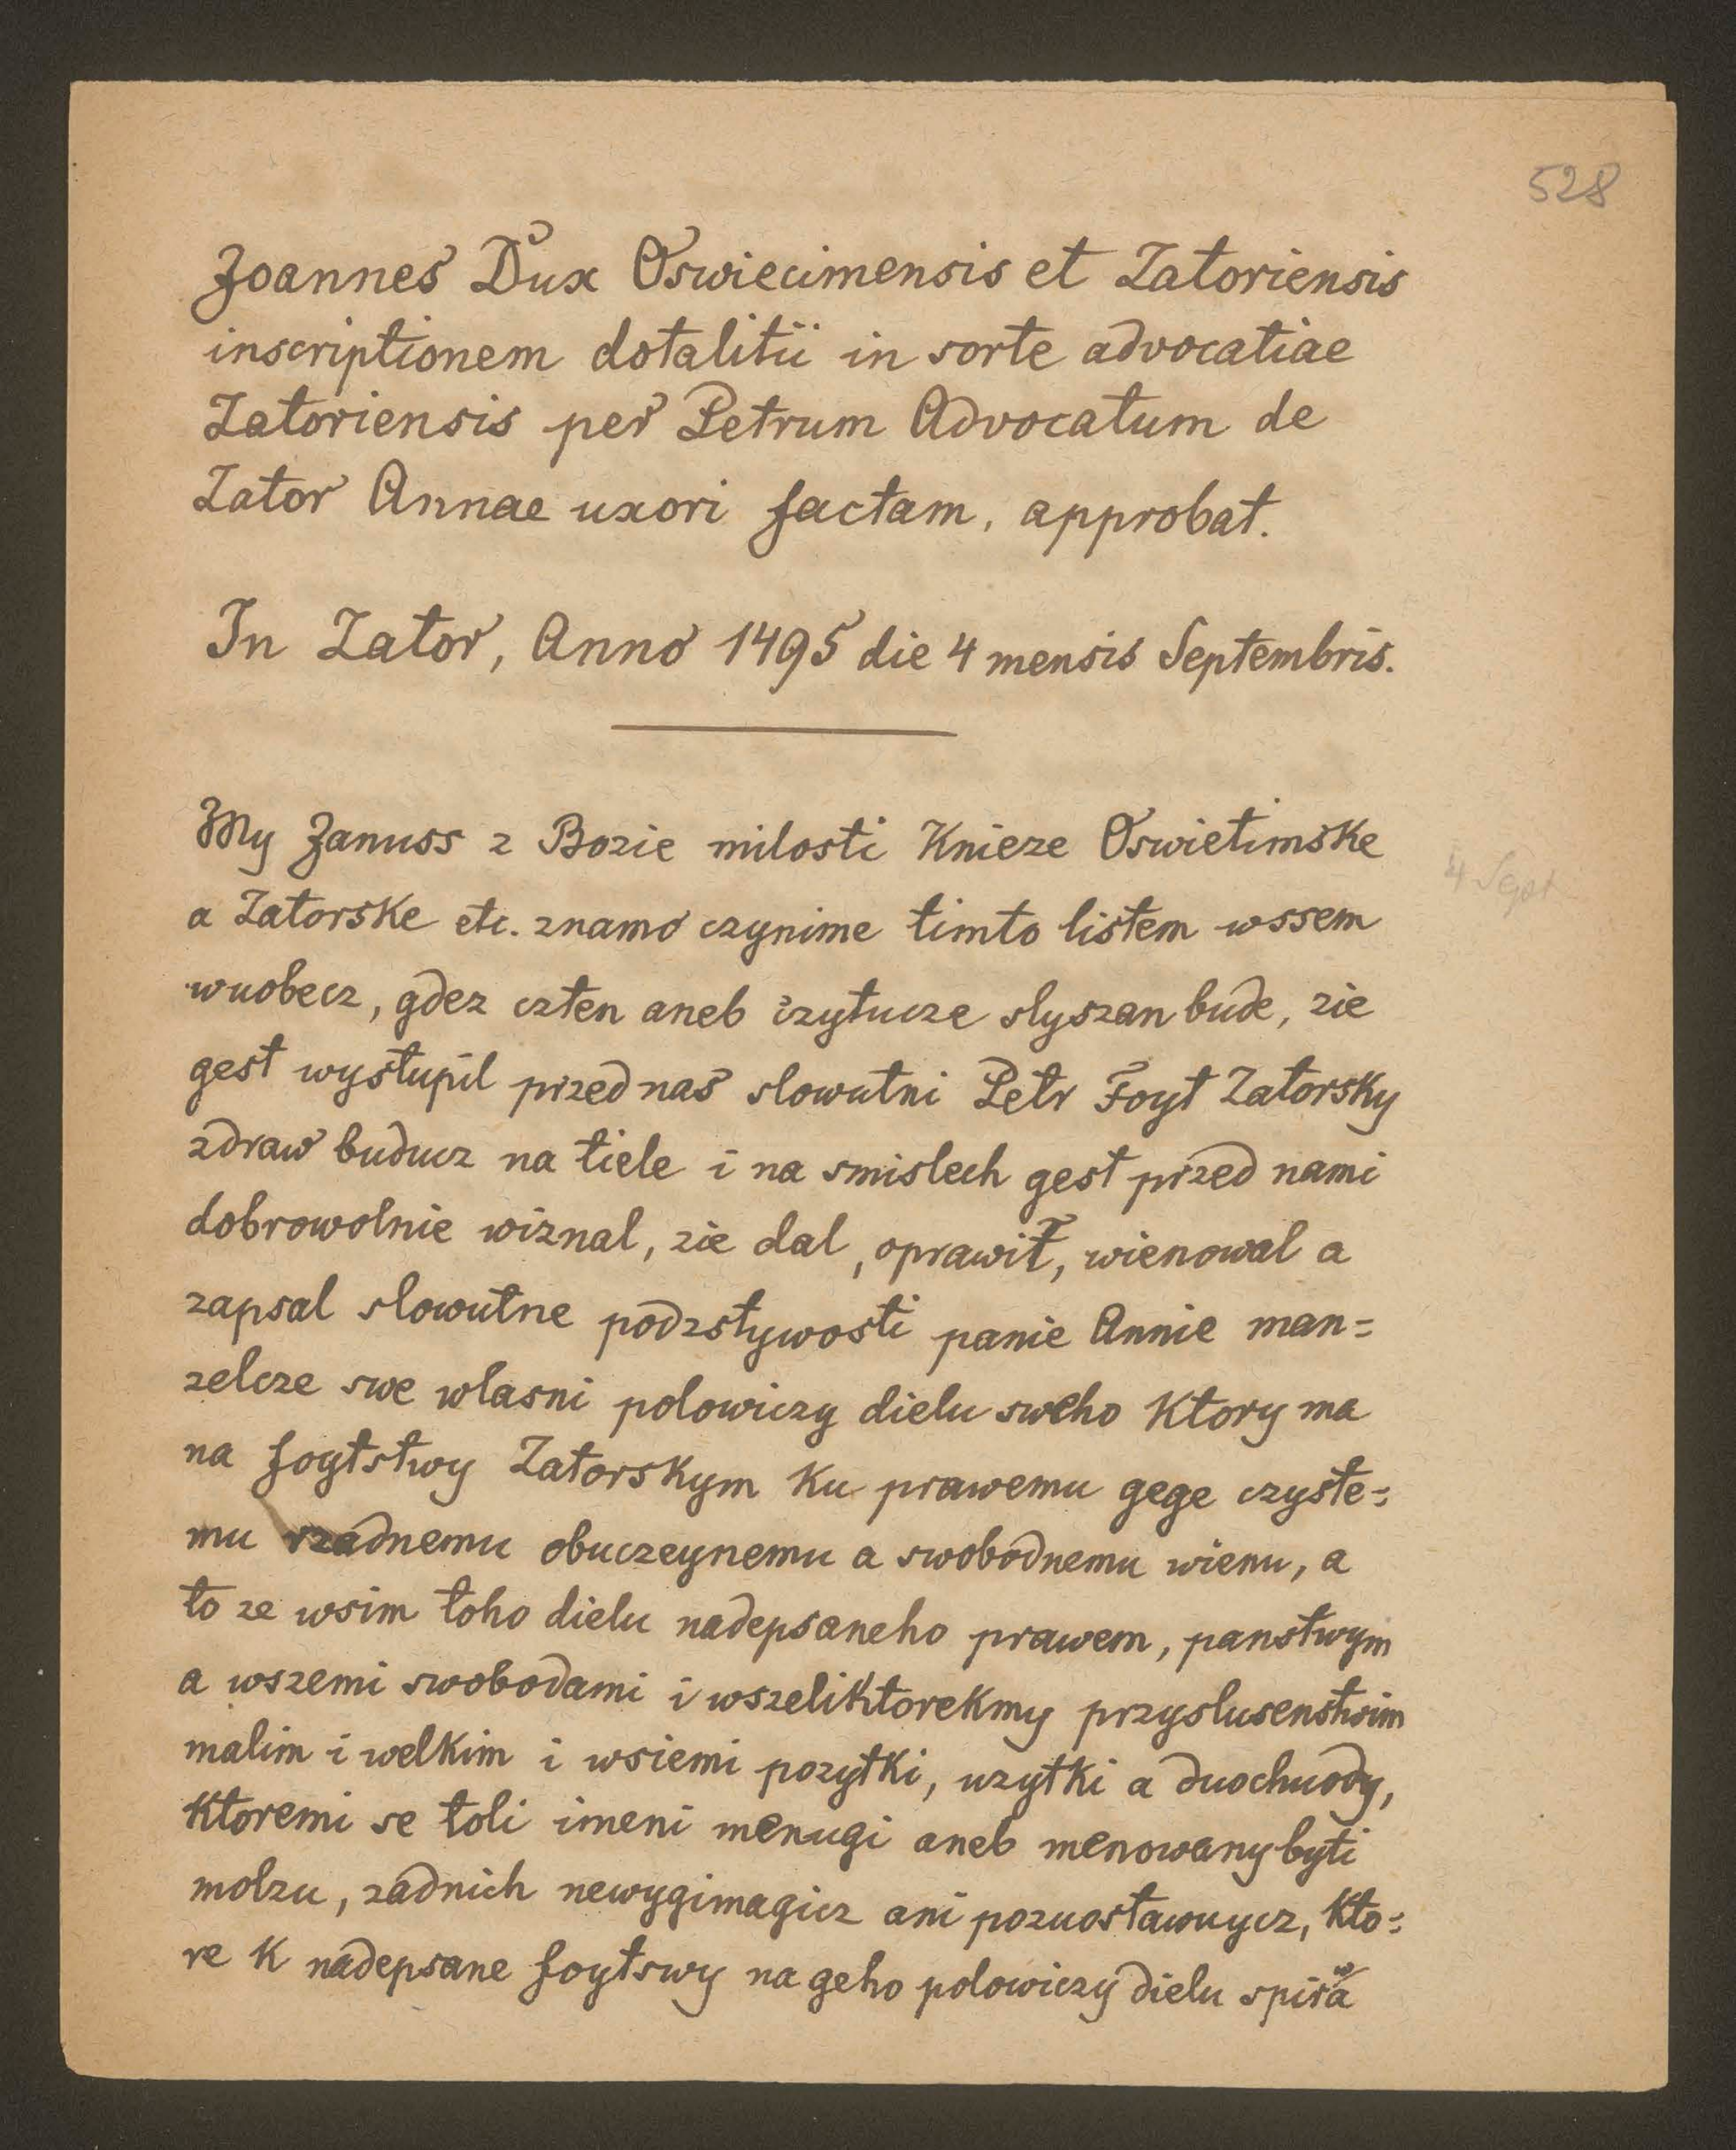 528
Joannes Dux Oswiecimensis et Zatoriensis
inscriptionem dotalitii in sorte advocatiae
Zatoriensis per Petrum Advocatum de
Zator Annae uxori factam, approbat.
In Zator, Anno 1495 die 4 mensis Septembris.
My Januss z Bozie milosti Knieze Oswietimske
4 Sept
a Zatorske etc. znamo czynime timto listem wssem
wuobecz, gdez czten aneb czytucze slyszan bude, zie
gest wystupil przed nas slowutni Petr Foyt Zatorsky
zdraw buducz na tiele i na smislech gest przed nami
dobrowolnie wiznal, zie dal, oprawil, wienowal a
zapsal slowutne podzstywosti panie Annie man=
zelcze swe wlasni polowiczy dielu sweho Ktory ma
na foytstwy Zatorskym Ku prawemu gege czyste=
mu rzadnemu obuczeynemu a swobodnemu wienu, a
to ze wsim toho dielu nadepsaneho prawem, panstwym
a wszemi swobodami i wszeliktorekmy przyslusenstwim
malim i welkim i wsiemi pozytki, uzytki a duochuody,
Ktoremi se toli imeni menugi aneb menowany byti
molzu, zadnich newygimagicz ani pozuostawuycz, Kto=
re K nadepsane foytswy na geho polowiczy dielu